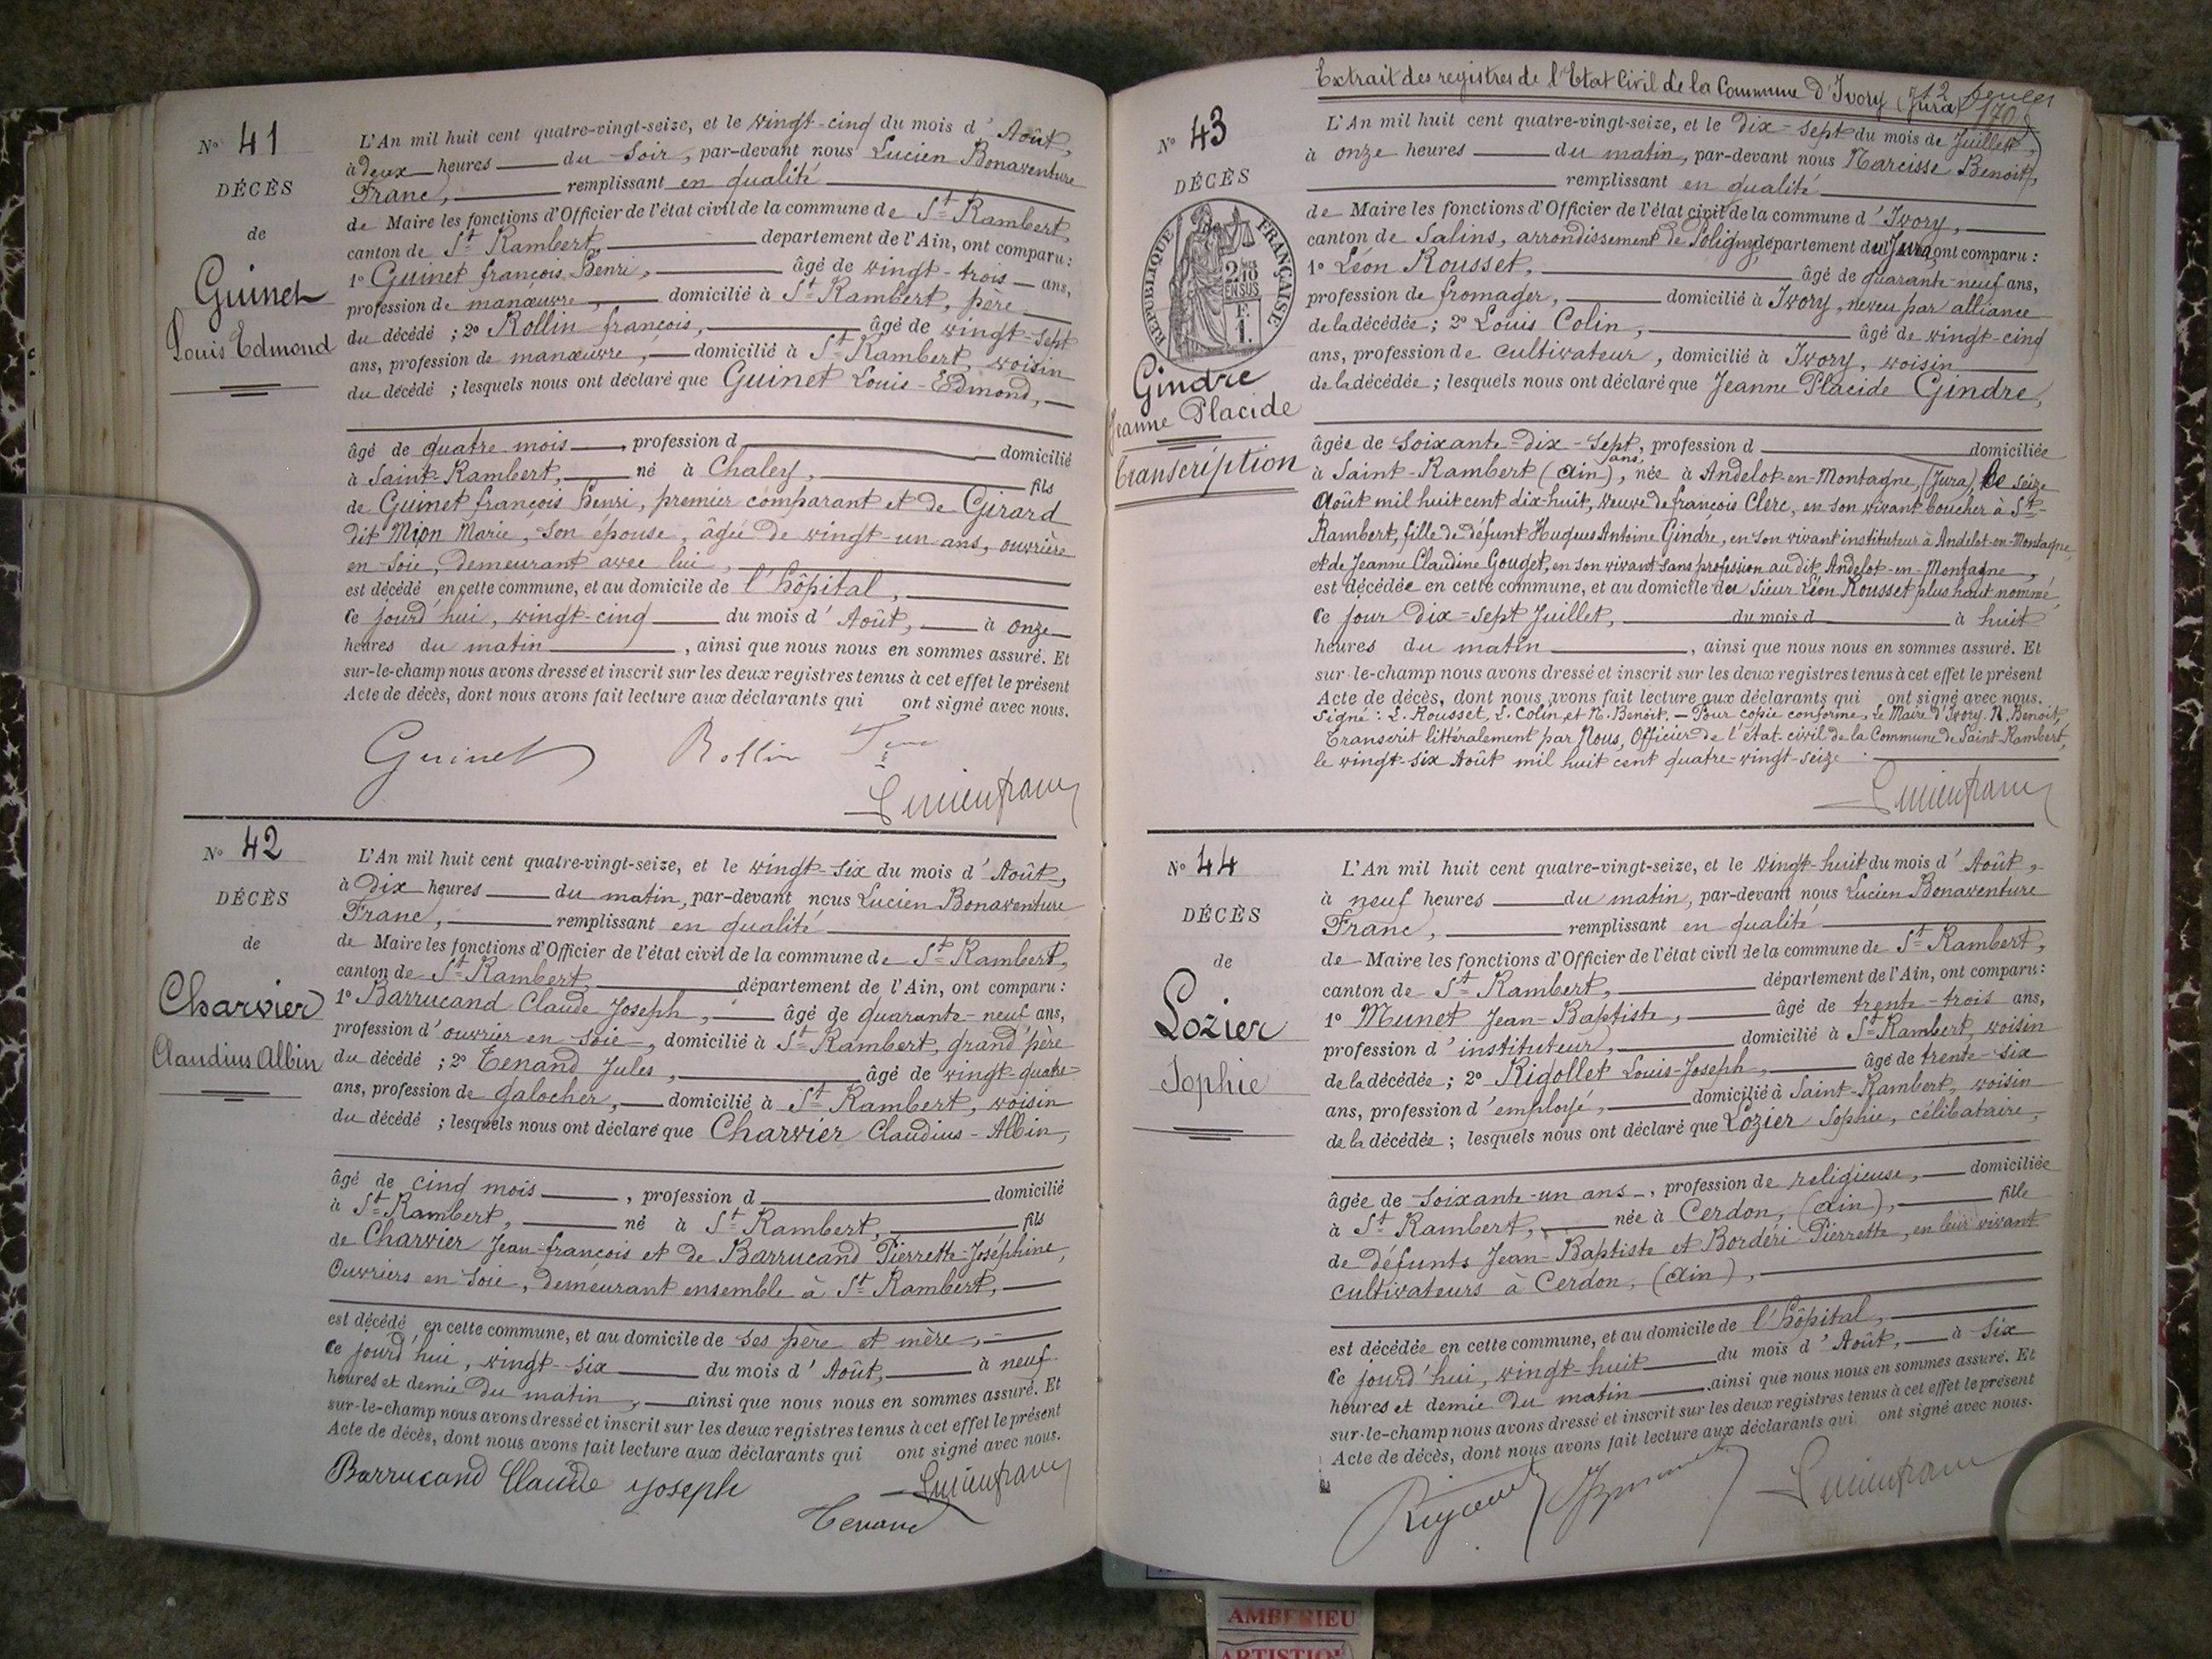 N° 41
DÉCÈS
de
Guinet
Louis Edmond
L'An mil huit cent quatre-vingt-seize, et le vingt-cinq du mois d'Août,
à deux heures du soir, par-devant nous Lucien Bonaventure
Franc, remplissant en qualité
de Maire les fonctions d'Officier de l'état civil de la commune de St Rambert,
canton de St Rambert, département de l'Ain, ont comparu :
1° Guinet françois Henri, âgé de vingt-trois ans,
profession de manœuvre, domicilié à St Rambert, père
du décédé ; 2° Rollin françois, âgé de vingt-sept
ans, profession de manœuvre, domicilié à St Rambert, voisin
du décédé ; lesquels nous ont déclaré que Guinet Louis-Edmond,
âgé de quatre mois, profession d domicilié
à Saint-Rambert, né à Chaley, fils
de Guinet françois Henri, premier comparant et de Girard
dit Mion Marie, son épouse, âgée de vingt-un ans, ouvrière
en soie, demeurant avec lui,
est décédé en cette commune, et au domicile de l'hôpital,
ce jourd'hui, vingt-cinq du mois d'Août, à onze
heures du matin, ainsi que nous nous en sommes assuré. Et
sur-le-champ nous avons dressé et inscrit sur les deux registres tenus à cet effet le présent
Acte de décès, dont nous avons fait lecture aux déclarants qui ont signé avec nous.
Guinet Rollin
Lucien franc
N° 42
DÉCÈS
de
Charvier
Claudius Albin
L'An mil huit cent quatre-vingt-seize, et le vingt-six du mois d'Août,
à dix heures du matin, par-devant nous Lucien Bonaventure
Franc, remplissant en qualité
de Maire les fonctions d'Officier de l'état civil de la commune de St Rambert,
canton de St Rambert, département de l'Ain, ont comparu :
1° Barrucand Claude Joseph, âgé de quarante-neuf ans,
profession d'ouvrier en soie, domicilié à St Rambert, grand'père
du décédé ; 2° Tenand Jules, âgé de vingt-quatre
ans, profession de galocher, domicilié à St Rambert, voisin
du décédé ; lesquels nous ont déclaré que Charvier Claudius-Albin,
âgé de cinq mois, profession d domicilié
à St Rambert, né à St Rambert, fils
de Charvier Jean-françois et de Barrucand Pierrette-Joséphine,
Ouvriers en soie, demeurant ensemble à St Rambert,
est décédé en cette commune, et au domicile de ses père et mère,
ce jourd'hui, vingt-six du mois d'Août, à neuf
heures et demie du matin, ainsi que nous nous en sommes assuré. Et
sur-le-champ nous avons dressé et inscrit sur les deux registres tenus à cet effet le présent
Acte de décès, dont nous avons fait lecture aux déclarants qui ont signé avec nous.
Barrucand Claude Joseph Lucien franc
Tenand
Extrait des registres de l'Etat Civil de la Commune d'Ivory (Jura)
N° 43
DÉCÈS
RÉPUBLIQUE FRANÇAISE
2/10
EN SUS
F.
1.
Gindre
Jeanne Placide
Transcription
L'An mil huit cent quatre-vingt-seize, et le dix-sept du mois de Juillet,
à onze heures du matin, par-devant nous Narcisse Benoit,
remplissant en qualité
de Maire les fonctions d'Officier de l'état civil de la commune d'Ivory,
canton de Salins, arrondissement de Poligny, département du Jura, ont comparu :
1° Léon Rousset, âgé de quarante-neuf ans,
profession de fromager, domicilié à Ivory, neveu par alliance
de la décédée ; 2° Louis Colin, âgé de vingt-cinq
ans, profession de cultivateur, domicilié à Ivory, voisin
de la décédée ; lesquels nous ont déclaré que Jeanne Placide Gindre,
âgée de soixante-dix-sept ans, profession d domiciliée
à Saint-Rambert (Ain), née à Andelot-en-Montagne, (Jura) le seize
Août mil huit cent dix-huit, veuve de françois Clerc, en son vivant boucher à St-
Rambert, fille de défunt Hugues Antoine Gindre, en son vivant instituteur à Andelot-en-Montagne,
et de Jeanne Claudine Gouget, en son vivant sans profession au dit Andelot-en-Montagne,
est décédée en cette commune, et au domicile du sieur Léon Rousset plus haut nommé,
ce jour dix-sept Juillet, du mois d à huit
heures du matin, ainsi que nous nous en sommes assuré. Et
sur-le-champ nous avons dressé et inscrit sur les deux registres tenus à cet effet le présent
Acte de décès, dont nous avons fait lecture aux déclarants qui ont signé avec nous.
Signé : L. Rousset, L. Colin et N. Benoit. - Pour copie conforme, Le Maire d'Ivory. N. Benoit,
Transcrit littéralement par Nous, Officier de l'état-civil de la Commune de Saint-Rambert,
le vingt-six Août mil huit cent quatre-vingt-seize.
Lucien franc
N° 44
DÉCÈS
de
Lozier
Sophie
L'An mil huit cent quatre-vingt-seize, et le vingt-huit du mois d'Août,
à neuf heures du matin, par-devant nous Lucien Bonaventure
Franc, remplissant en qualité
de Maire les fonctions d'Officier de l'état civil de la commune de St Rambert,
canton de St Rambert, département de l'Ain, ont comparu :
1° Munet Jean-Baptiste, âgé de trente-trois ans,
profession d'instituteur, domicilié à St Rambert, voisin
de la décédée ; 2° Rigollet Louis-Joseph, âgé de trente-six
ans, profession d'employé, domicilié à Saint-Rambert, voisin
de la décédée ; lesquels nous ont déclaré que Lozier Sophie, célibataire,
âgée de soixante-un ans, profession de religieuse, domiciliée
à St Rambert, née à Cerdon, (Ain), fille
de défunts Jean-Baptiste et Bordéri Pierrette, en leur vivant
cultivateurs à Cerdon, (Ain),
est décédée en cette commune, et au domicile de l'hôpital,
ce jourd'hui, vingt-huit du mois d'Août, à six
heures et demie du matin, ainsi que nous nous en sommes assuré. Et
sur-le-champ nous avons dressé et inscrit sur les deux registres tenus à cet effet le présent
Acte de décès, dont nous avons fait lecture aux déclarants qui ont signé avec nous.
Lucien franc
AMBERIEU